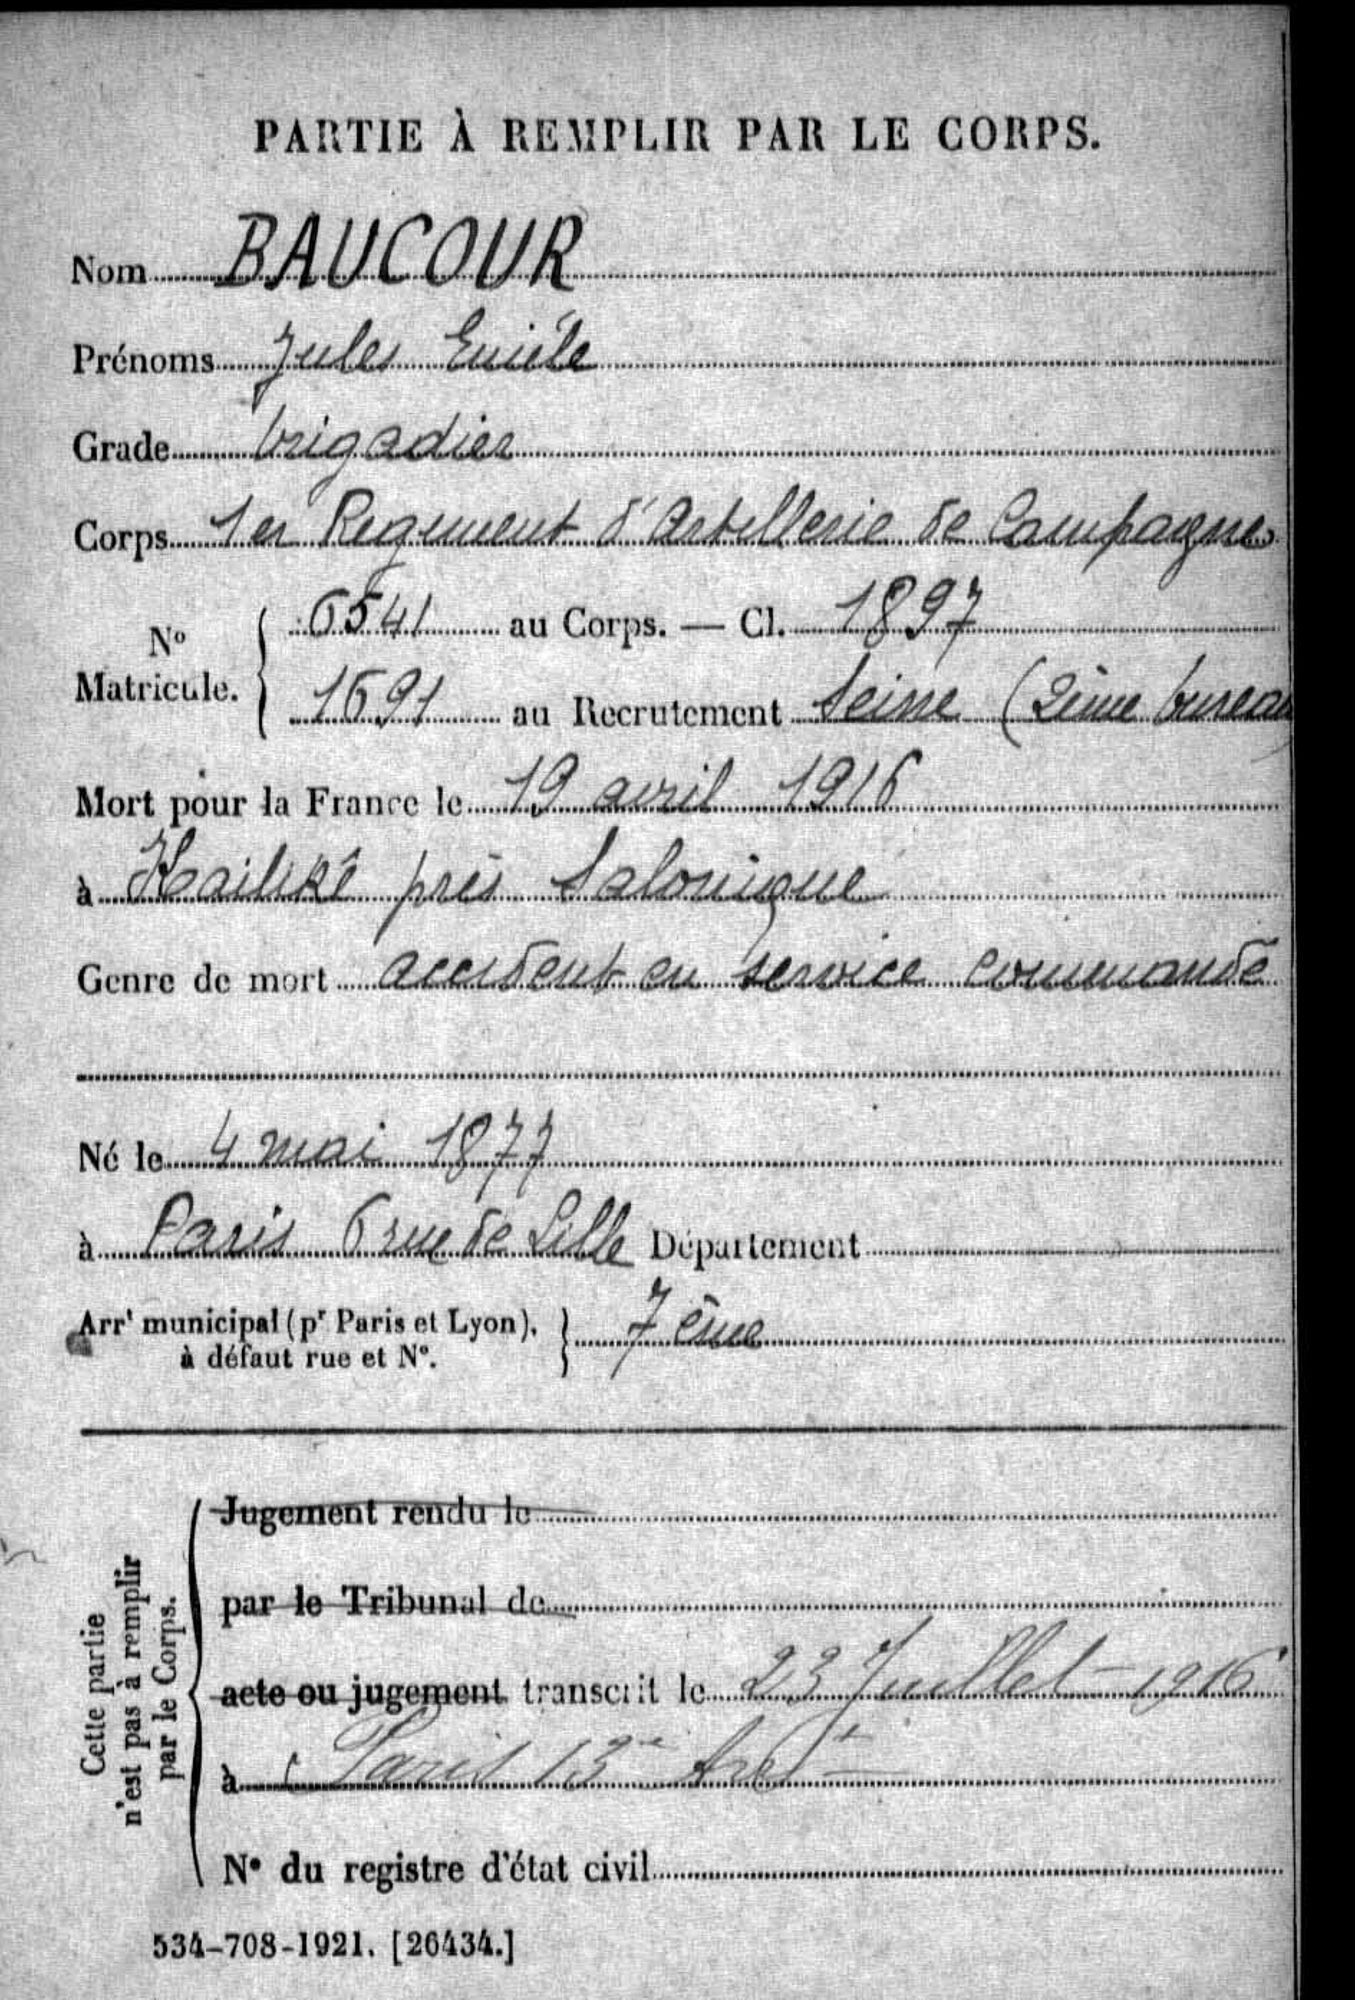 PARTIE À REMPLIR PAR LE CORPS.
Nom BAUCOUR
Prénoms Jules Emiéle
Grade brigadier
Corps 1er Regiment d'Artillerie de Campagne
N° Matricule. 6541 au Corps. — Cl. 1897
1691 au Recrutement Seine (2ème bureau)
Mort pour la France le 19 avril 1916
à près Salonique
Genre de mort accident en service commandé
Né le 4 mai 1877
à Paris 6 rue de Lille Département
Arrt municipal (pr Paris et Lyon), 7ème
à défaut rue et N°.
Cette partie
n'est pas à remplir
par le Corps.
Jugement rendu le
par le Tribunal de
acte ou jugement transcrit le 23 Juillet 1916
à Paris 13e Arrt
N° du registre d'état civil
534-708-1921. [26434.]